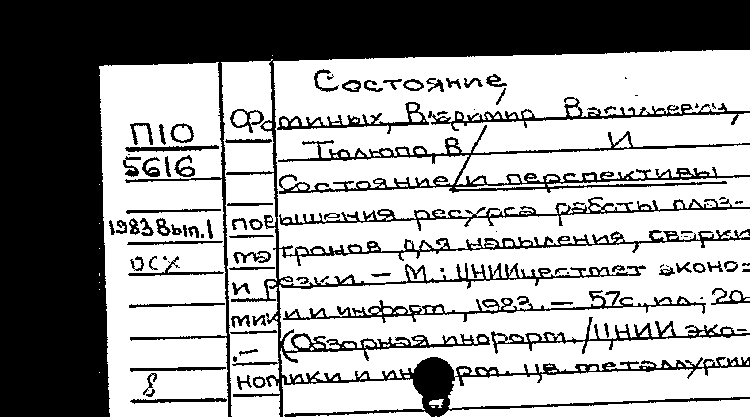 Состояние
Фотиных, Владимир Васильевич,
П10
Тюлюпо, В И
5616
Состояние и перспективы
1983 Вып.1
повышения ресурса работы плаз-
матронов для напыления, сварки
ОСХ
и резки. – М.: ЦНИИцветмет эконо-
мики и информ., 1983. – 57с., ил; 20
. – (Обзорная информ. / ЦНИИ эко-
номики и информ. цв. металлургии
8